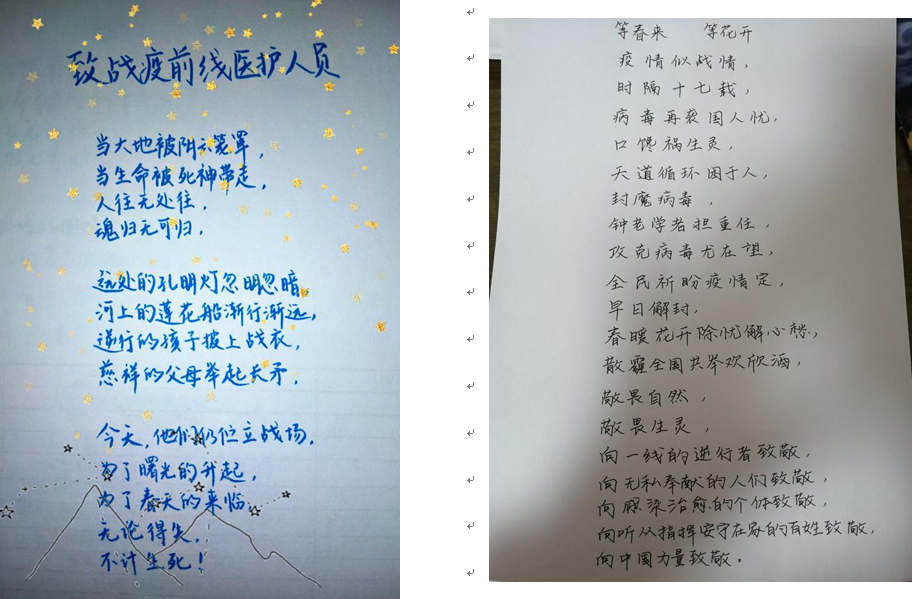 致战疫前线医护人员
当大地被阴云笼罩，
当生命被死神带走，
人往无处往，
魂归无可归，
远处的孔明灯忽明忽暗，
河上的莲花船渐行渐远，
逆行的孩子披上战衣，
慈祥的父母举起长矛，
今天，他们仍伫立战场，
为了曙光的升起，
为了春天的来临，
无论得失，
不计生死！
等春来 等花开
疫情似战情，
时隔十七载，
病毒再袭国人忧，
口馋祸生灵，
天道循环困于人，
封魔病毒，
钟老学者担重任，
攻克病毒尤在望，
全民祈盼疫情定，
早日解封，
春暖花开除忧解心愁，
散霾全国共举欢欣酒，
敬畏自然，
敬畏生灵，
向一线的逆行者致敬，
向无私奉献的人们致敬，
向感染治愈的个体致敬，
向听从指挥安守在家的百姓致敬，
向中国力量致敬。